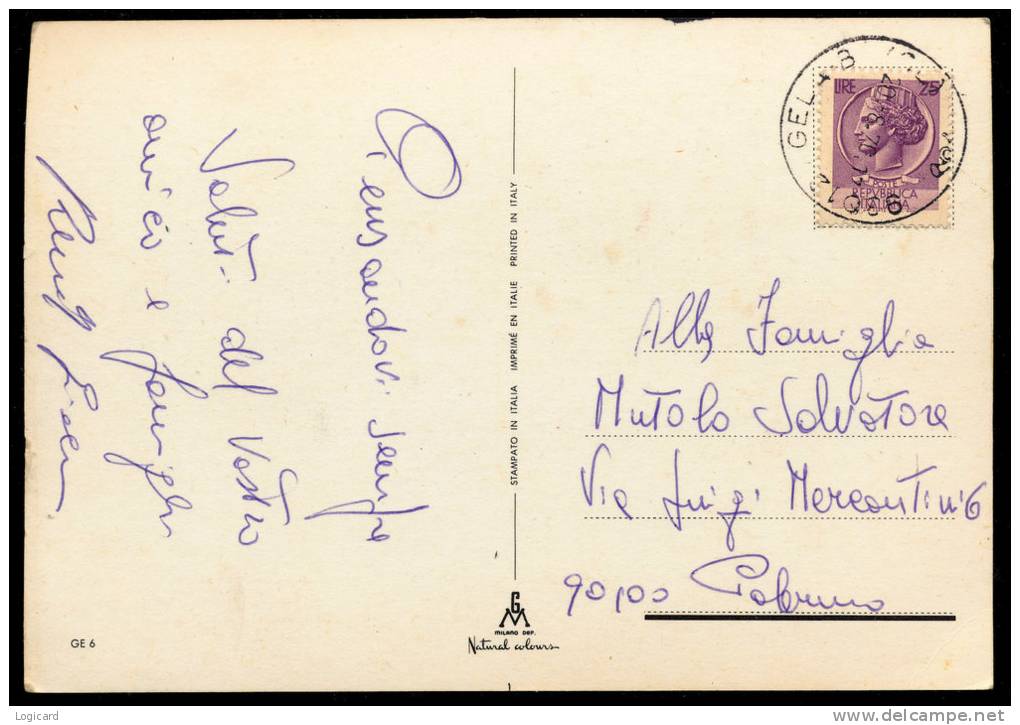 Pensandovi sempre
Saluti dal Vostro
amico e famiglia
LIRE 25
POSTE
REPVBBLICA
ITALIANA
Alla Famiglia
Mutolo Salvatore
Via Luigi Mercantini 6
90100 Palermo
STAMPATO IN ITALIA IMPRIMÉ EN ITALIE PRINTED IN ITALY
GM
MILANO DEP.
Natural colours
GE 6
Logicard
delcampe.net